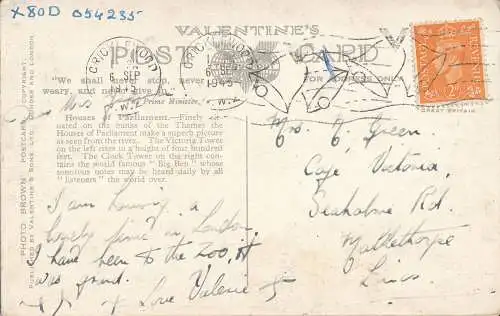 X80D 054235
VALENTINE'S
POST CARD
CRICKLEWOOD
6 SEP
1945
N.W.2
CRICKLEWOOD
6 SEP
1945
N.W.2
FOR ADDRESS ONLY
POSTAGE
REVENUE
2D
GREAT BRITAIN.
"We shall never stop, never
weary, and never give in."
Prime Minister,
Houses of Parliament.—Finely
situated on the banks of the Thames the
Houses of Parliament make a superb picture
as seen from the river. The Victoria Tower
on the left rises to a height of four hundred
feet. The Clock Tower on the right contains
the world famous "Big Ben" whose
sonorous notes may be heard daily by all
"listeners" the world over.
PHOTO BROWN POSTCARD. COPYRIGHT.
PUBLISHED BY VALENTINE & SONS LTD. DUNDEE AND LONDON.
I am having a
lovely time in London
I have been to the Zoo, it
was grand.
Love Valerie
Mrs Green,
Cafe Victoria,
Seaholme Rd.
Mablethorpe
Lincs.